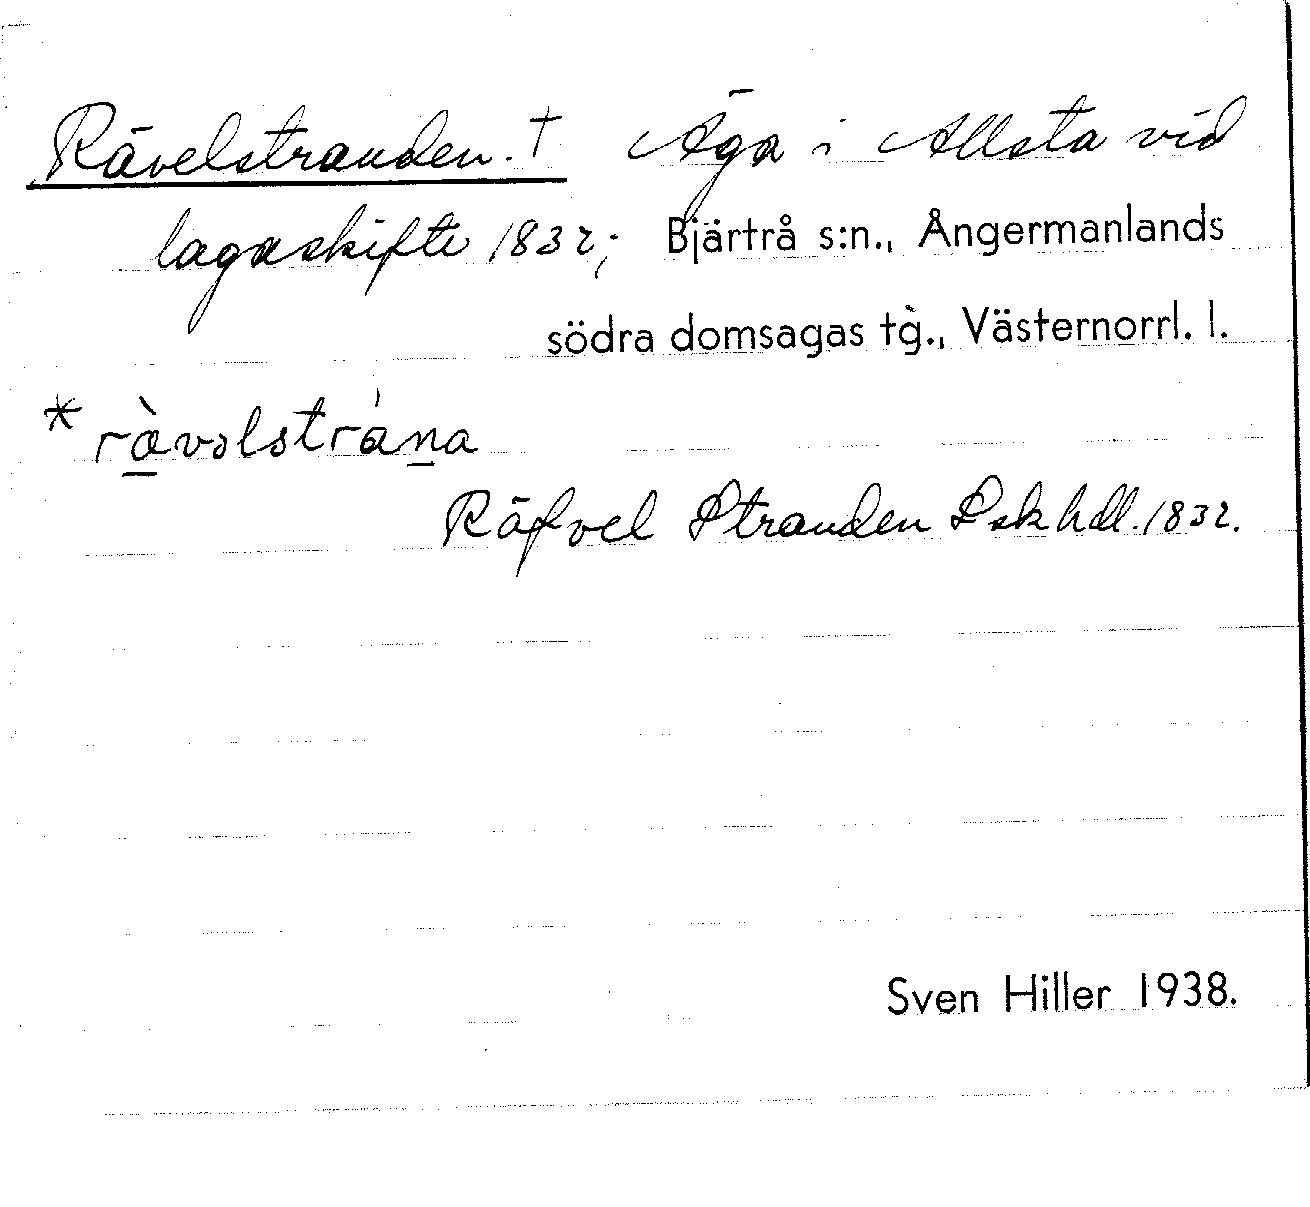 Rävelstranden. † Äga i Allsta vid
lagaskifte 1832; Bjärtrå s:n., Ångermanlands
södra domsagas tg., Västernorrl. l.
* rà̲vəlstráṉa
Räfvel Stranden Lskhdl. 1832.
Sven Hiller 1938.